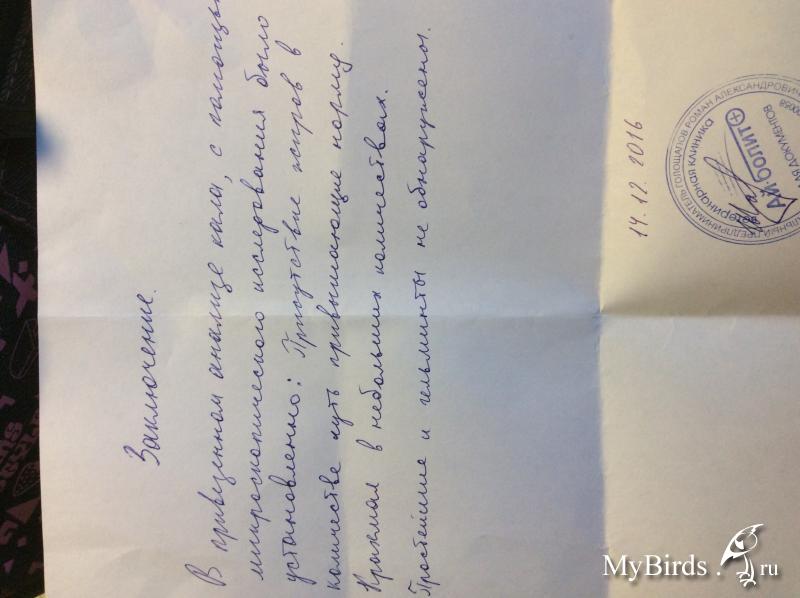 Заключение.
В привезенном анализе кала, с помощью
микроскопического исследования было
установленно: Присутствие жиров в
количестве чуть привышающие норму.
Крахмал в небольших количествах.
Простейшие и гельминты не обнаружены.
14.12.2016
ПРЕДПРИНИМАТЕЛЬ ГОЛОЩАПОВ РОМАН АЛЕКСАНДРОВИЧ
ветеринарная клиника
Айболит
ДОКУМЕНТОВ
MyBirds.ru